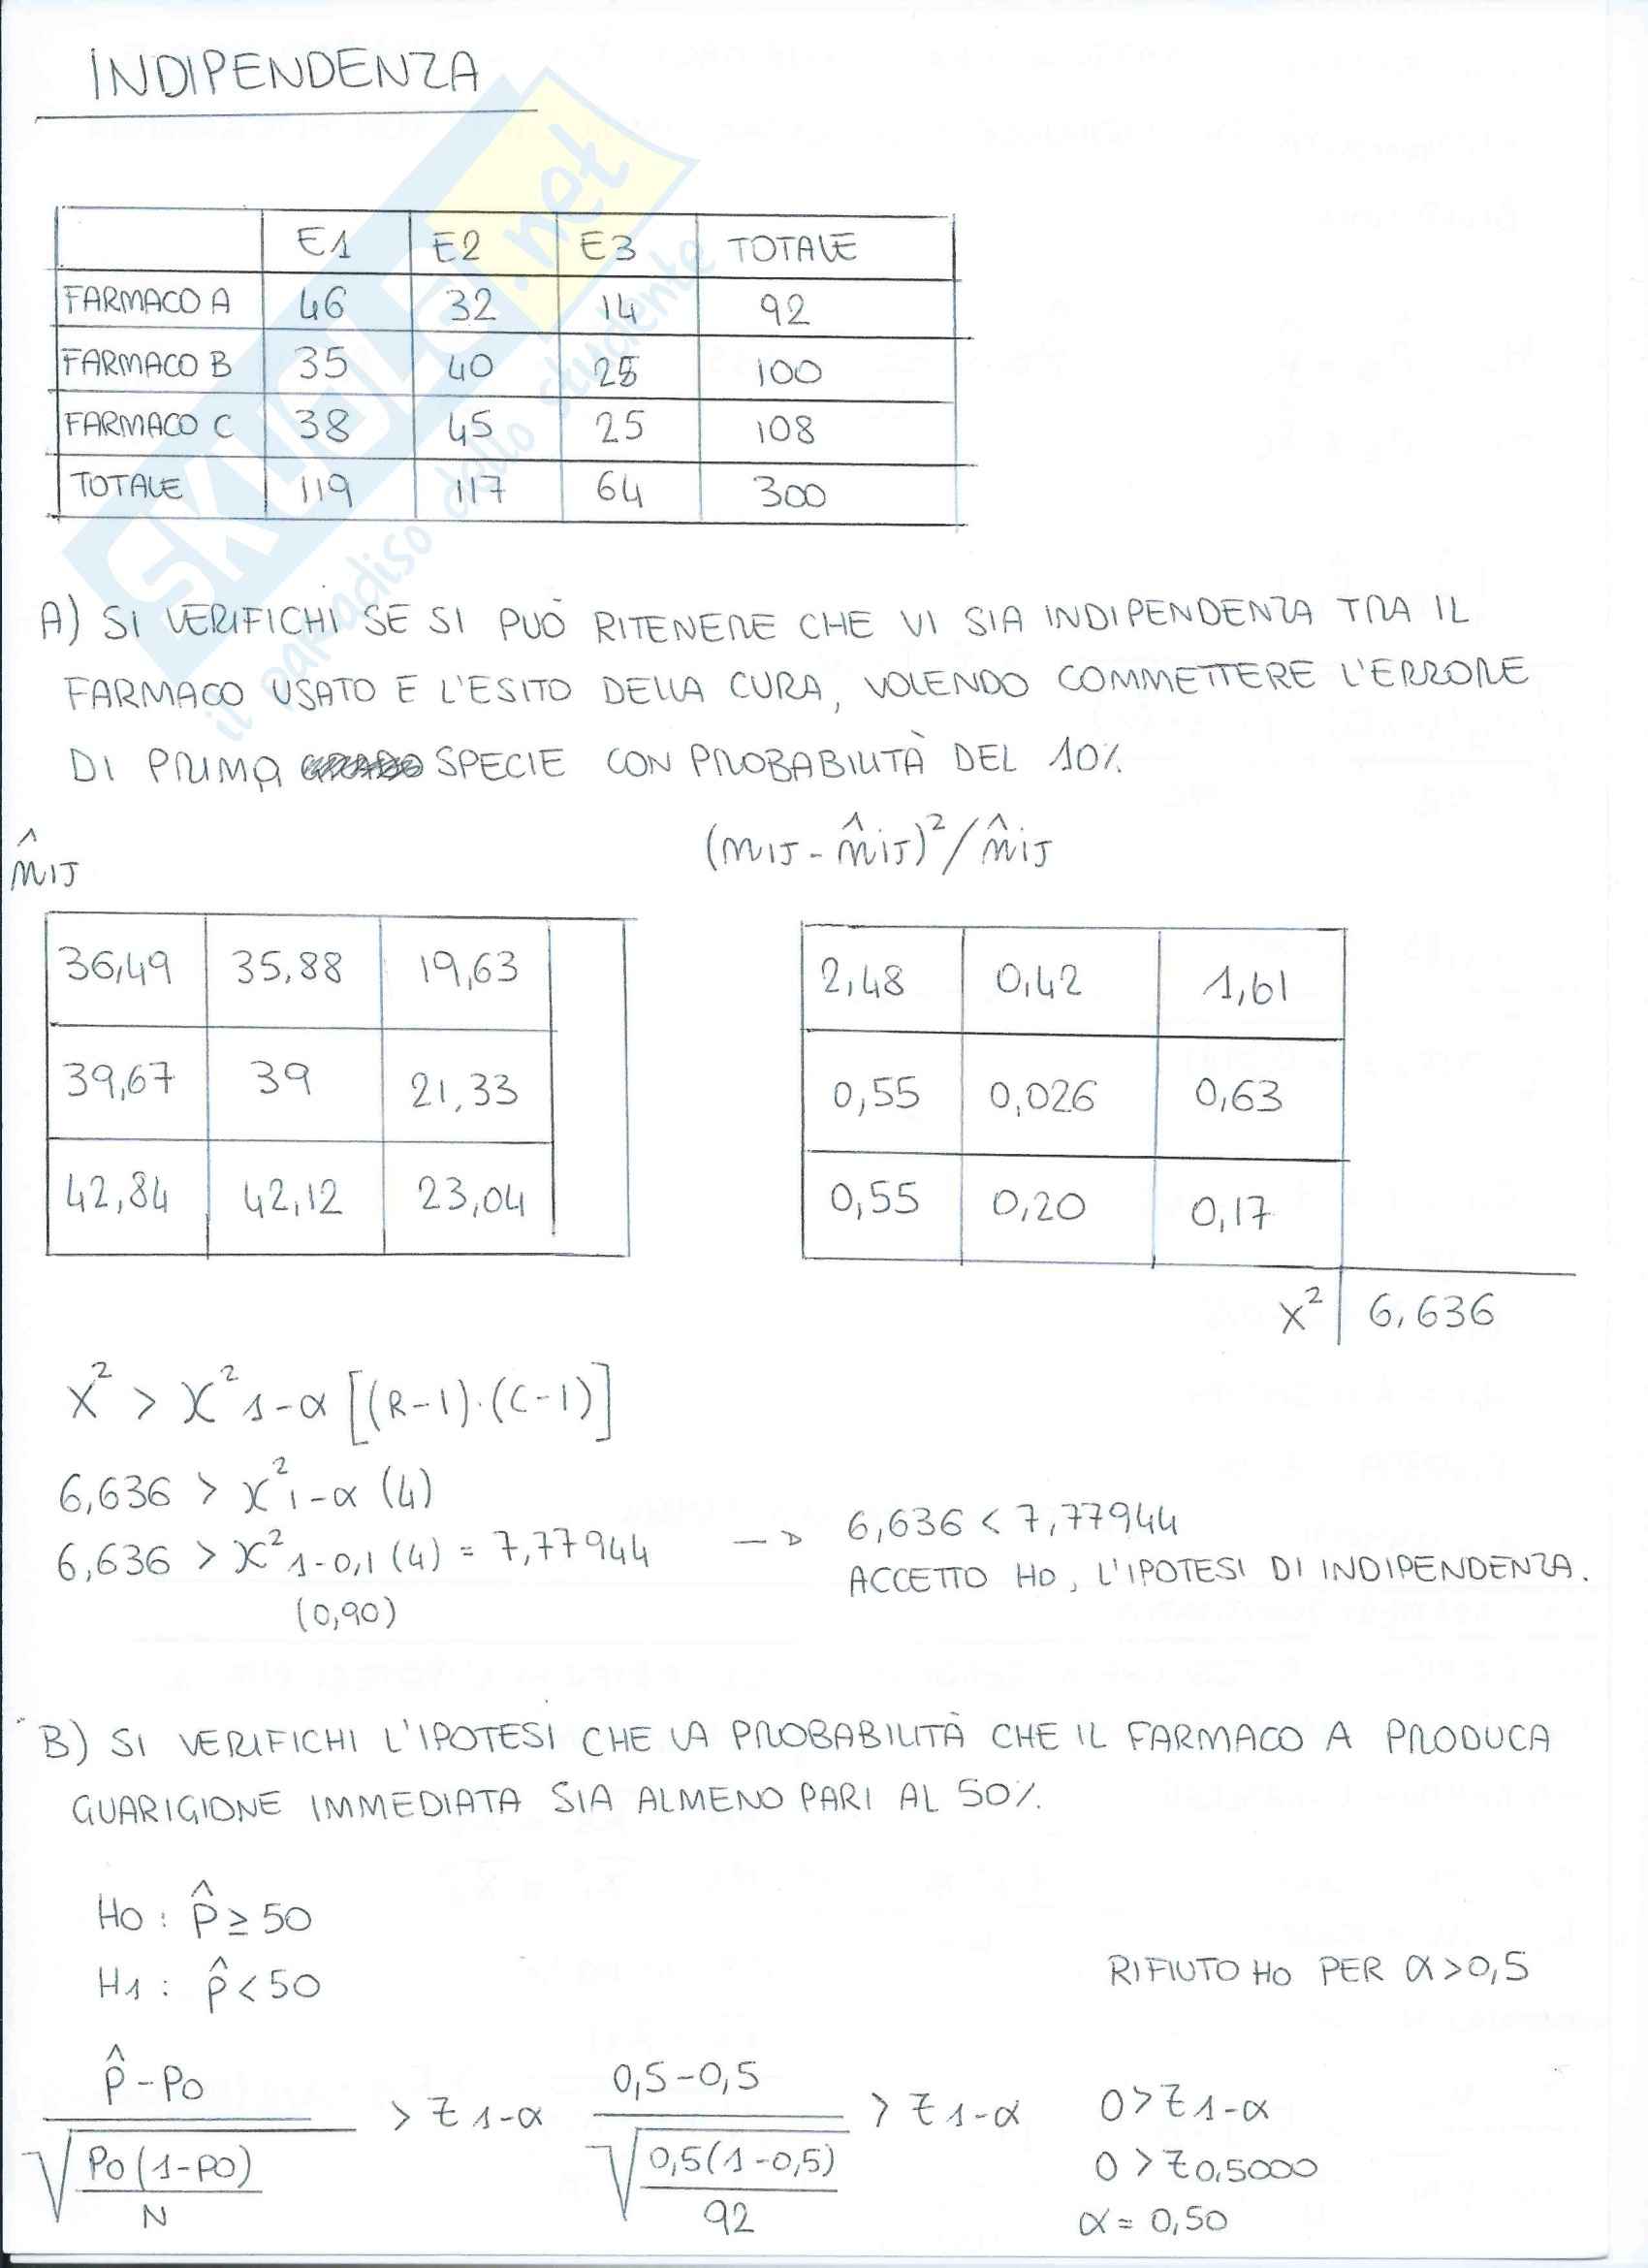 INDIPENDENZA
E1 E2 E3 TOTALE
FARMACO A 46 32 14 92
FARMACO B 35 40 25 100
FARMACO C 38 45 25 108
TOTALE 119 117 64 300
SKUOLA.net
il paradiso dello studente
A) SI VERIFICHI SE SI PUÒ RITENERE CHE VI SIA INDIPENDENZA TRA IL
FARMACO USATO E L'ESITO DELLA CURA, VOLENDO COMMETTERE L'ERRORE
DI PRIMA SPECIE CON PROBABILITÀ DEL 10%.
n̂IJ
(nIJ - n̂IJ)² / n̂IJ
36,49 35,88 19,63
39,67 39 21,33
42,84 42,12 23,04
2,48 0,42 1,61
0,55 0,026 0,63
0,55 0,20 0,17
X² 6,636
X² > χ² 1-α [(R-1)·(C-1)]
6,636 > χ² 1-α (4)
6,636 > χ² 1-0,1 (4) = 7,77944
(0,90)
→ 6,636 < 7,77944
ACCETTO H0, L'IPOTESI DI INDIPENDENZA.
B) SI VERIFICHI L'IPOTESI CHE LA PROBABILITÀ CHE IL FARMACO A PRODUCA
GUARIGIONE IMMEDIATA SIA ALMENO PARI AL 50%.
H0 : p̂ ≥ 50
H1 : p̂ < 50
RIFIUTO H0 PER α > 0,5
p̂ - p0 / √(p0(1-p0)/N) > z 1-α
0,5-0,5 / √(0,5(1-0,5)/92) > z 1-α
0 > z 1-α
0 > z 0,5000
α = 0,50